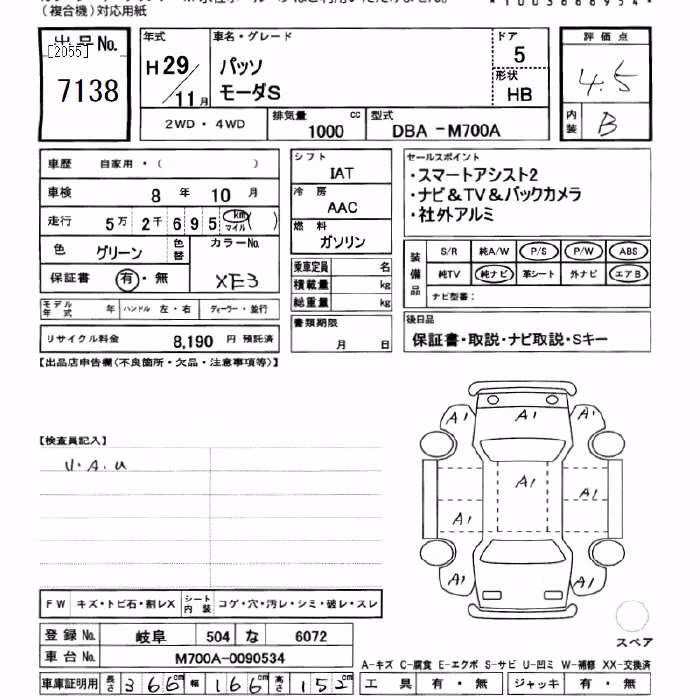 (複合機)対応用紙
出品No.
[2055]
7138
年式
H29/11月
車名・グレード
パッソ
モーダS
ドア
5
形状
HB
評価点
4.5
内装
B
2WD・4WD
排気量
1000
cc
型式
DBA -M700A
車歴 自家用・( )
車検 8 年 10 月
走行 5万 2千 6 9 5 km マイル ( )
色 グリーン 色替
カラーNo.
XE3
保証書 有・無
シフト
IAT
冷房
AAC
燃料
ガソリン
セールスポイント
・スマートアシスト2
・ナビ&TV&バックカメラ
・社外アルミ
装備品
S/R 純A/W P/S P/W ABS
純TV 純ナビ 革シート 外ナビ エアB
ナビ型番:
乗車定員 名
積載量 kg
総重量 kg
モデル年式 年 ハンドル 左・右 ディーラー・並行
リサイクル料金 8,190 円 預託済
書類期限
月 日
後日品
保証書・取説・ナビ取説・Sキー
【出品店申告欄(不良箇所・欠品・注意事項等)】
【検査員記入】
U・A・U
A1 A1 A1
A1
A1
A1
A1 A1
スペア
FW キズ・トビ石・割レX シート内装 コゲ・穴・汚レ・シミ・破レ・スレ
登録No. 岐阜 504 な 6072
車台No. M700A-0090534
A-キズ C-腐食 E-エクボ S-サビ U-凹ミ W-補修 XX-交換済
車庫証明用 長さ 366cm 幅 166cm 高さ 152cm
工具 有・無 ジャッキ 有・無